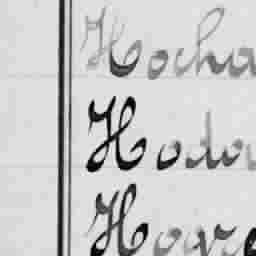 Hocha
Hodo
Hogre